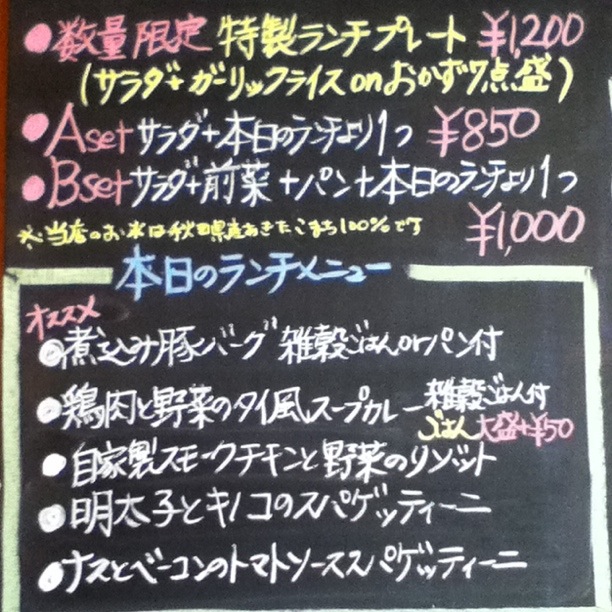 ●数量限定 特製ランチプレート ¥1,200
(サラダ+ガーリックライスonおかず7点盛)
●Aset サラダ+本日のランチより1つ ¥850
●Bset サラダ+前菜+パン+本日のランチより1つ
※当店のお米は秋田県産あきたこまち100%です ¥1,000
本日のランチメニュー
オススメ
●煮込み豚バーグ 雑穀ごはんorパン付
●鶏肉と野菜のタイ風スープカレー 雑穀ごはん付
ごはん大盛+¥50
●自家製スモークチキンと野菜のリゾット
●明太子とキノコのスパゲッティーニ
●ナスとベーコンのトマトソーススパゲッティーニ